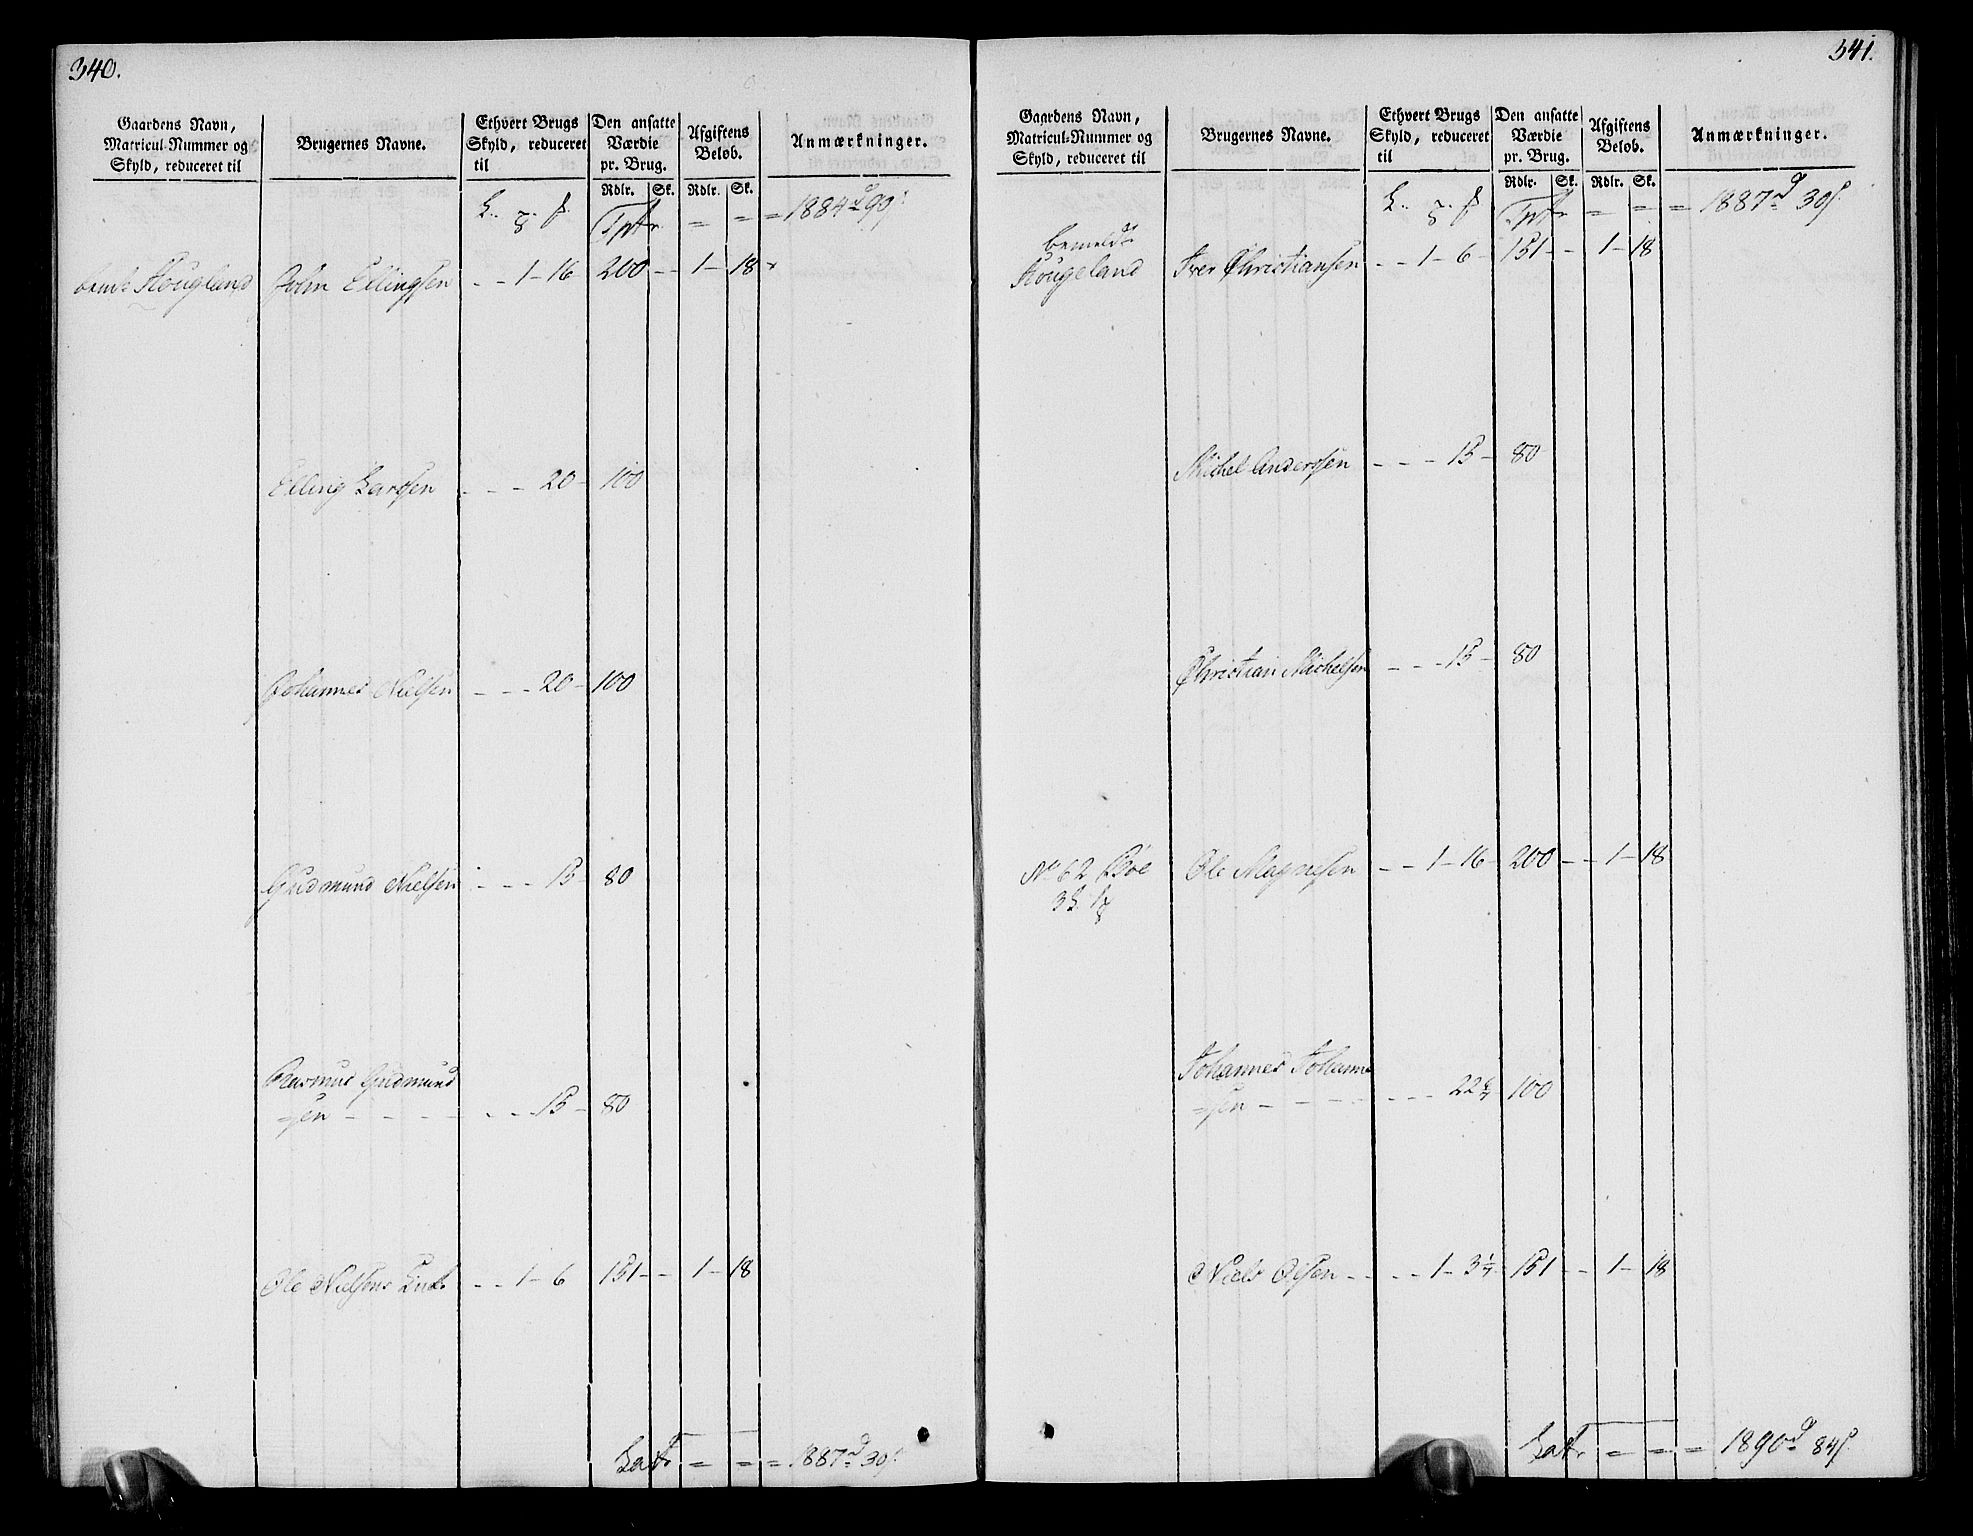 340.
Gaardens Navn, Matricul-Nummer og Skyld, reduceret til | Brugernes Navne. | Ethvert Brugs Skyld, reduceret til | Den ansatte Værdie pr. Brug. | Afgiftens Beløb. | Anmærkninger.
Rdlr. Sk. Rdlr. Sk.
Tptr = = = 1884d 90s.
Hougland John Ellingsen - - 1 - 16 200 - - 1 - 18
Elling Larssen - - - 20 - 100
Johannes Nielsen - - - 20 - 100
Gudmund Nielsen - - - 15 - 80
Rasmus Gudmund
=sen - - - - - - - 15 - 80
Ole Nielsens - - 1 - 6 151 - - 1 - 18
Lat. = = = 1887d 30s.
341.
Gaardens Navn, Matricul-Nummer og Skyld, reduceret til | Brugernes Navne. | Ethvert Brugs Skyld, reduceret til | Den ansatte Værdie pr. Brug. | Afgiftens Beløb. | Anmærkninger.
Rdlr. Sk. Rdlr. Sk.
Tptr = = = 1887d 30s.
bemeldte
Hougeland Iver Christiansen - - 1 - 6 - 151 - - 1 - 18
Michel Anderssen - - - 15 - 80
Christian Michelsen - - - 15 - 80
No 62 Bøe Ole Magnesen - - 1 - 16 - 200 - - 1 - 18
Johannes Johanne
=sen - - - - - - - 22 100
Niels Olsen - - - - 1 - 3 151 - - 1 - 18
Lat. = = = 1890d 84s.